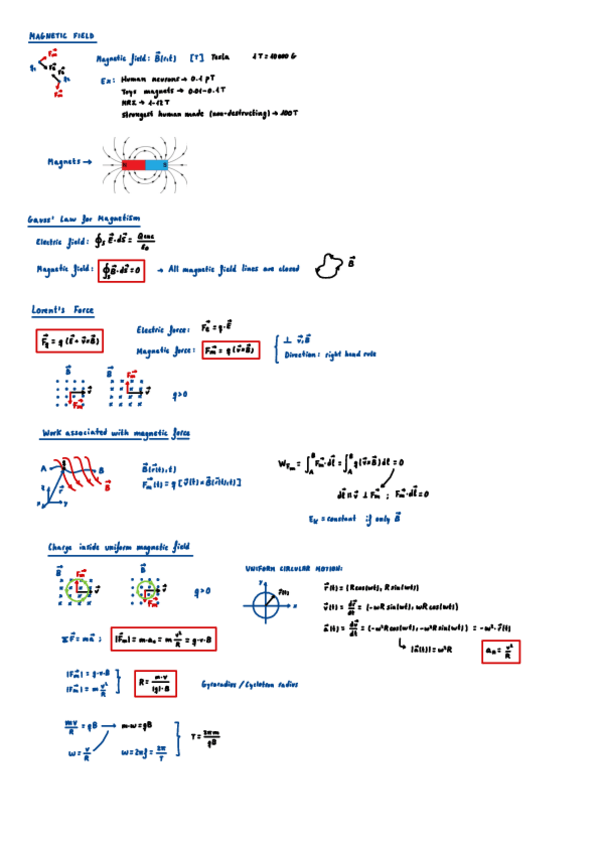 MAGNETIC FIELD
Magnetic field: B⃗(r,t) [T] Tesla 1T = 10000 G
Ex: Human neurons → 0.1 pT
Toys magnets → 0.01-0.1T
MRI → 1-12 T
Strongest human made (non-destructing) → 100T
Magnets →
Gauss' Law for Magnetism
Electric field: ∮ₛ E⃗·dS⃗ = Qenc/ε₀
Magnetic field: ∮ₛ B⃗·dS⃗ = 0 → All magnetic field lines are closed B⃗
Lorent's Force
Electric force: F⃗ₑ = q·E⃗
F⃗ = q(E⃗ + v⃗×B⃗) Magnetic force: F⃗m = q(v⃗×B⃗) ⊥ v⃗,B⃗
Direction: right hand rule
B⃗ B⃗ F⃗m
v⃗ v⃗ q>0
F⃗m
Work associated with magnetic force
A B B⃗(r⃗(t),t) W_Fm = ∫ₐᴮ F⃗m·dl⃗ = ∫ₐᴮ q(v⃗×B⃗)dl⃗ = 0
F⃗m(t) = q[v⃗(t)×B⃗(r⃗(t),t)]
B⃗ dl⃗ ∥ v⃗ ⊥ F⃗m ; F⃗m·dl⃗ = 0
Eₖ = constant if only B⃗
Charge inside uniform magnetic field
UNIFORM CIRCULAR MOTION:
B⃗ B⃗ q>0
F⃗m v⃗ F⃗m v⃗
y r⃗(t) x
r⃗(t) = (Rcos(wt), Rsin(wt))
v⃗(t) = dr⃗/dt = (-wRsin(wt), wRcos(wt))
a⃗(t) = dv⃗/dt = (-w²Rcos(wt), -w²Rsin(wt)) = -w²·r⃗(t)
ΣF⃗ = ma⃗ ; |F⃗m| = m·aₙ = m v²/R = q·v·B
↳ |a⃗(t)| = w²R aₙ = v²/R
|F⃗m| = q·v·B
|F⃗m| = m v²/R
R = m·v/|q|·B Gyroradius / Cyclotron radius
mv/R = qB → m·w = qB
w = v/R w = 2πf = 2π/T
T = 2πm/qB